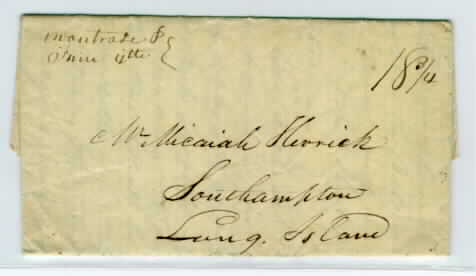 montrose Pa
June 9th
18 3/4
Mr Micaiah Herrick
Southampton
Long Island